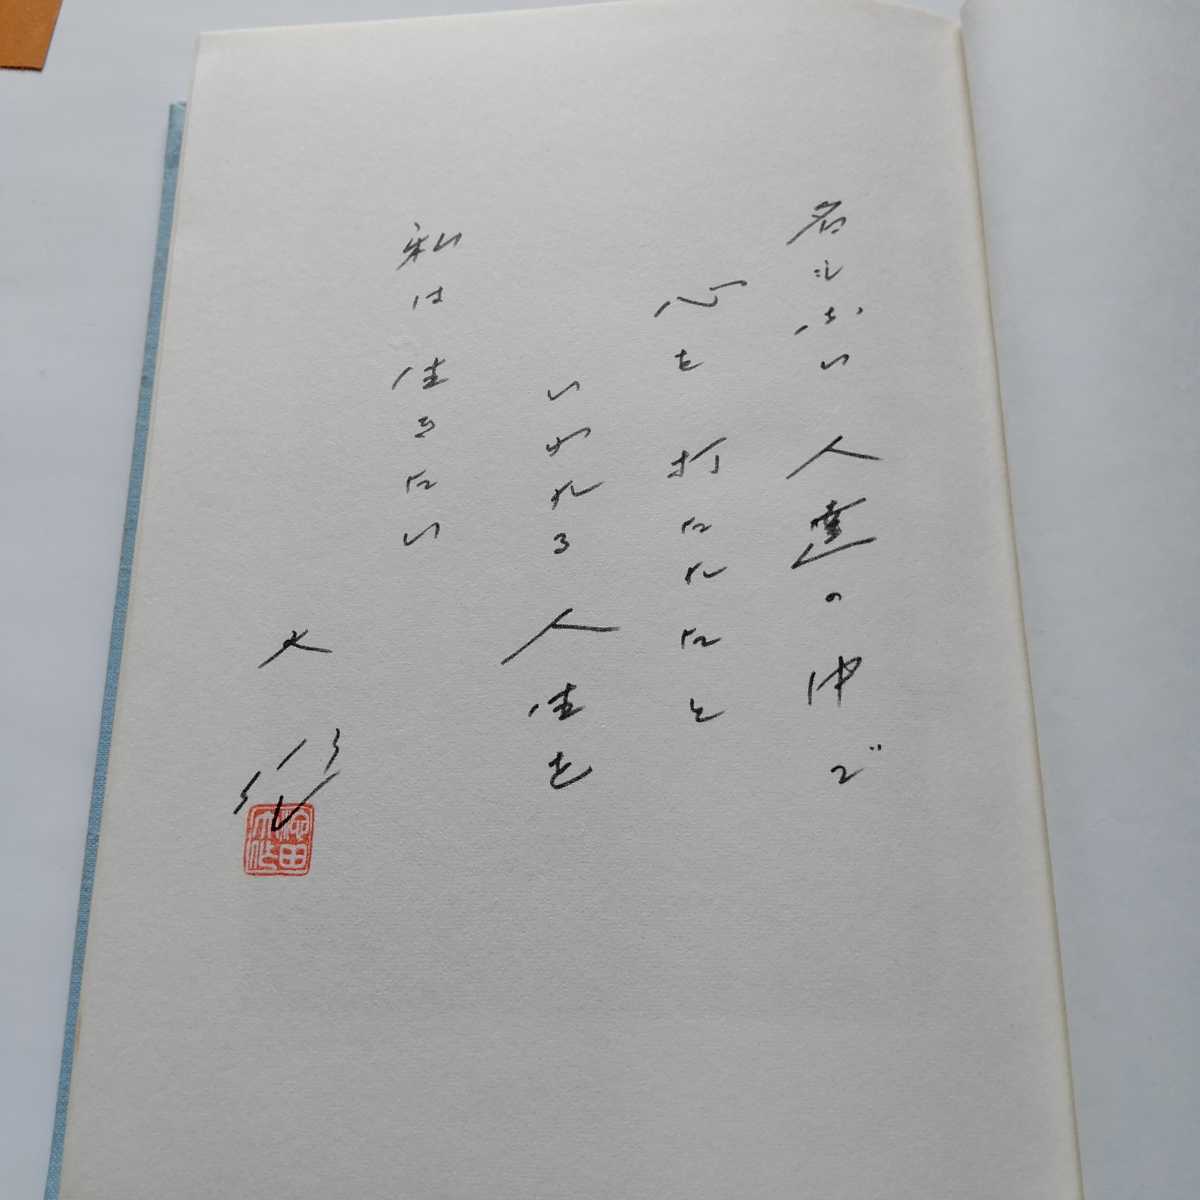 名もない人達の中で
心を打たれたと
いわれる人生を
私は生きたい
大作
池田大作